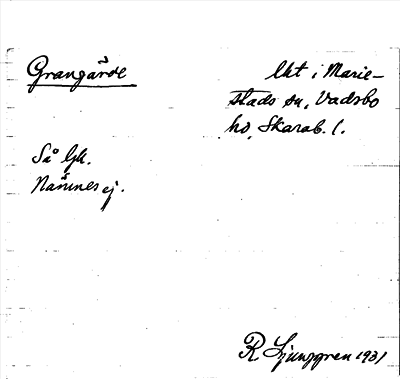 Grangärde
lht i Marie-
stads sn, Vadsbo
hd, Skarab. l.
Så ljk.
Nämnes ej.
R Ljunggren 1931